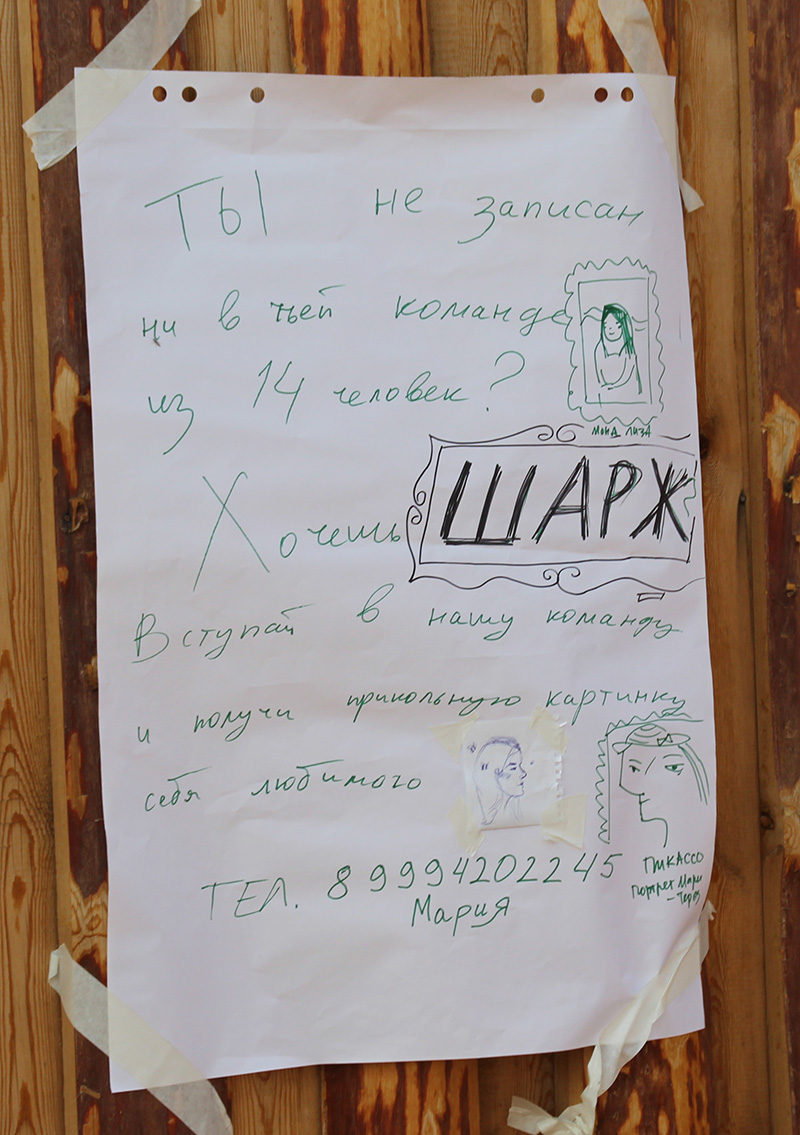 ТЫ не записан
ни в чьей команде
из 14 человек?
МОНА ЛИЗА
Хочешь ШАРЖ
Вступай в нашу команду
и получи прикольную картинку
себя любимого
ТЕЛ. 89994202245
Мария
ПИКАССО
Портрет Мари
-Терез